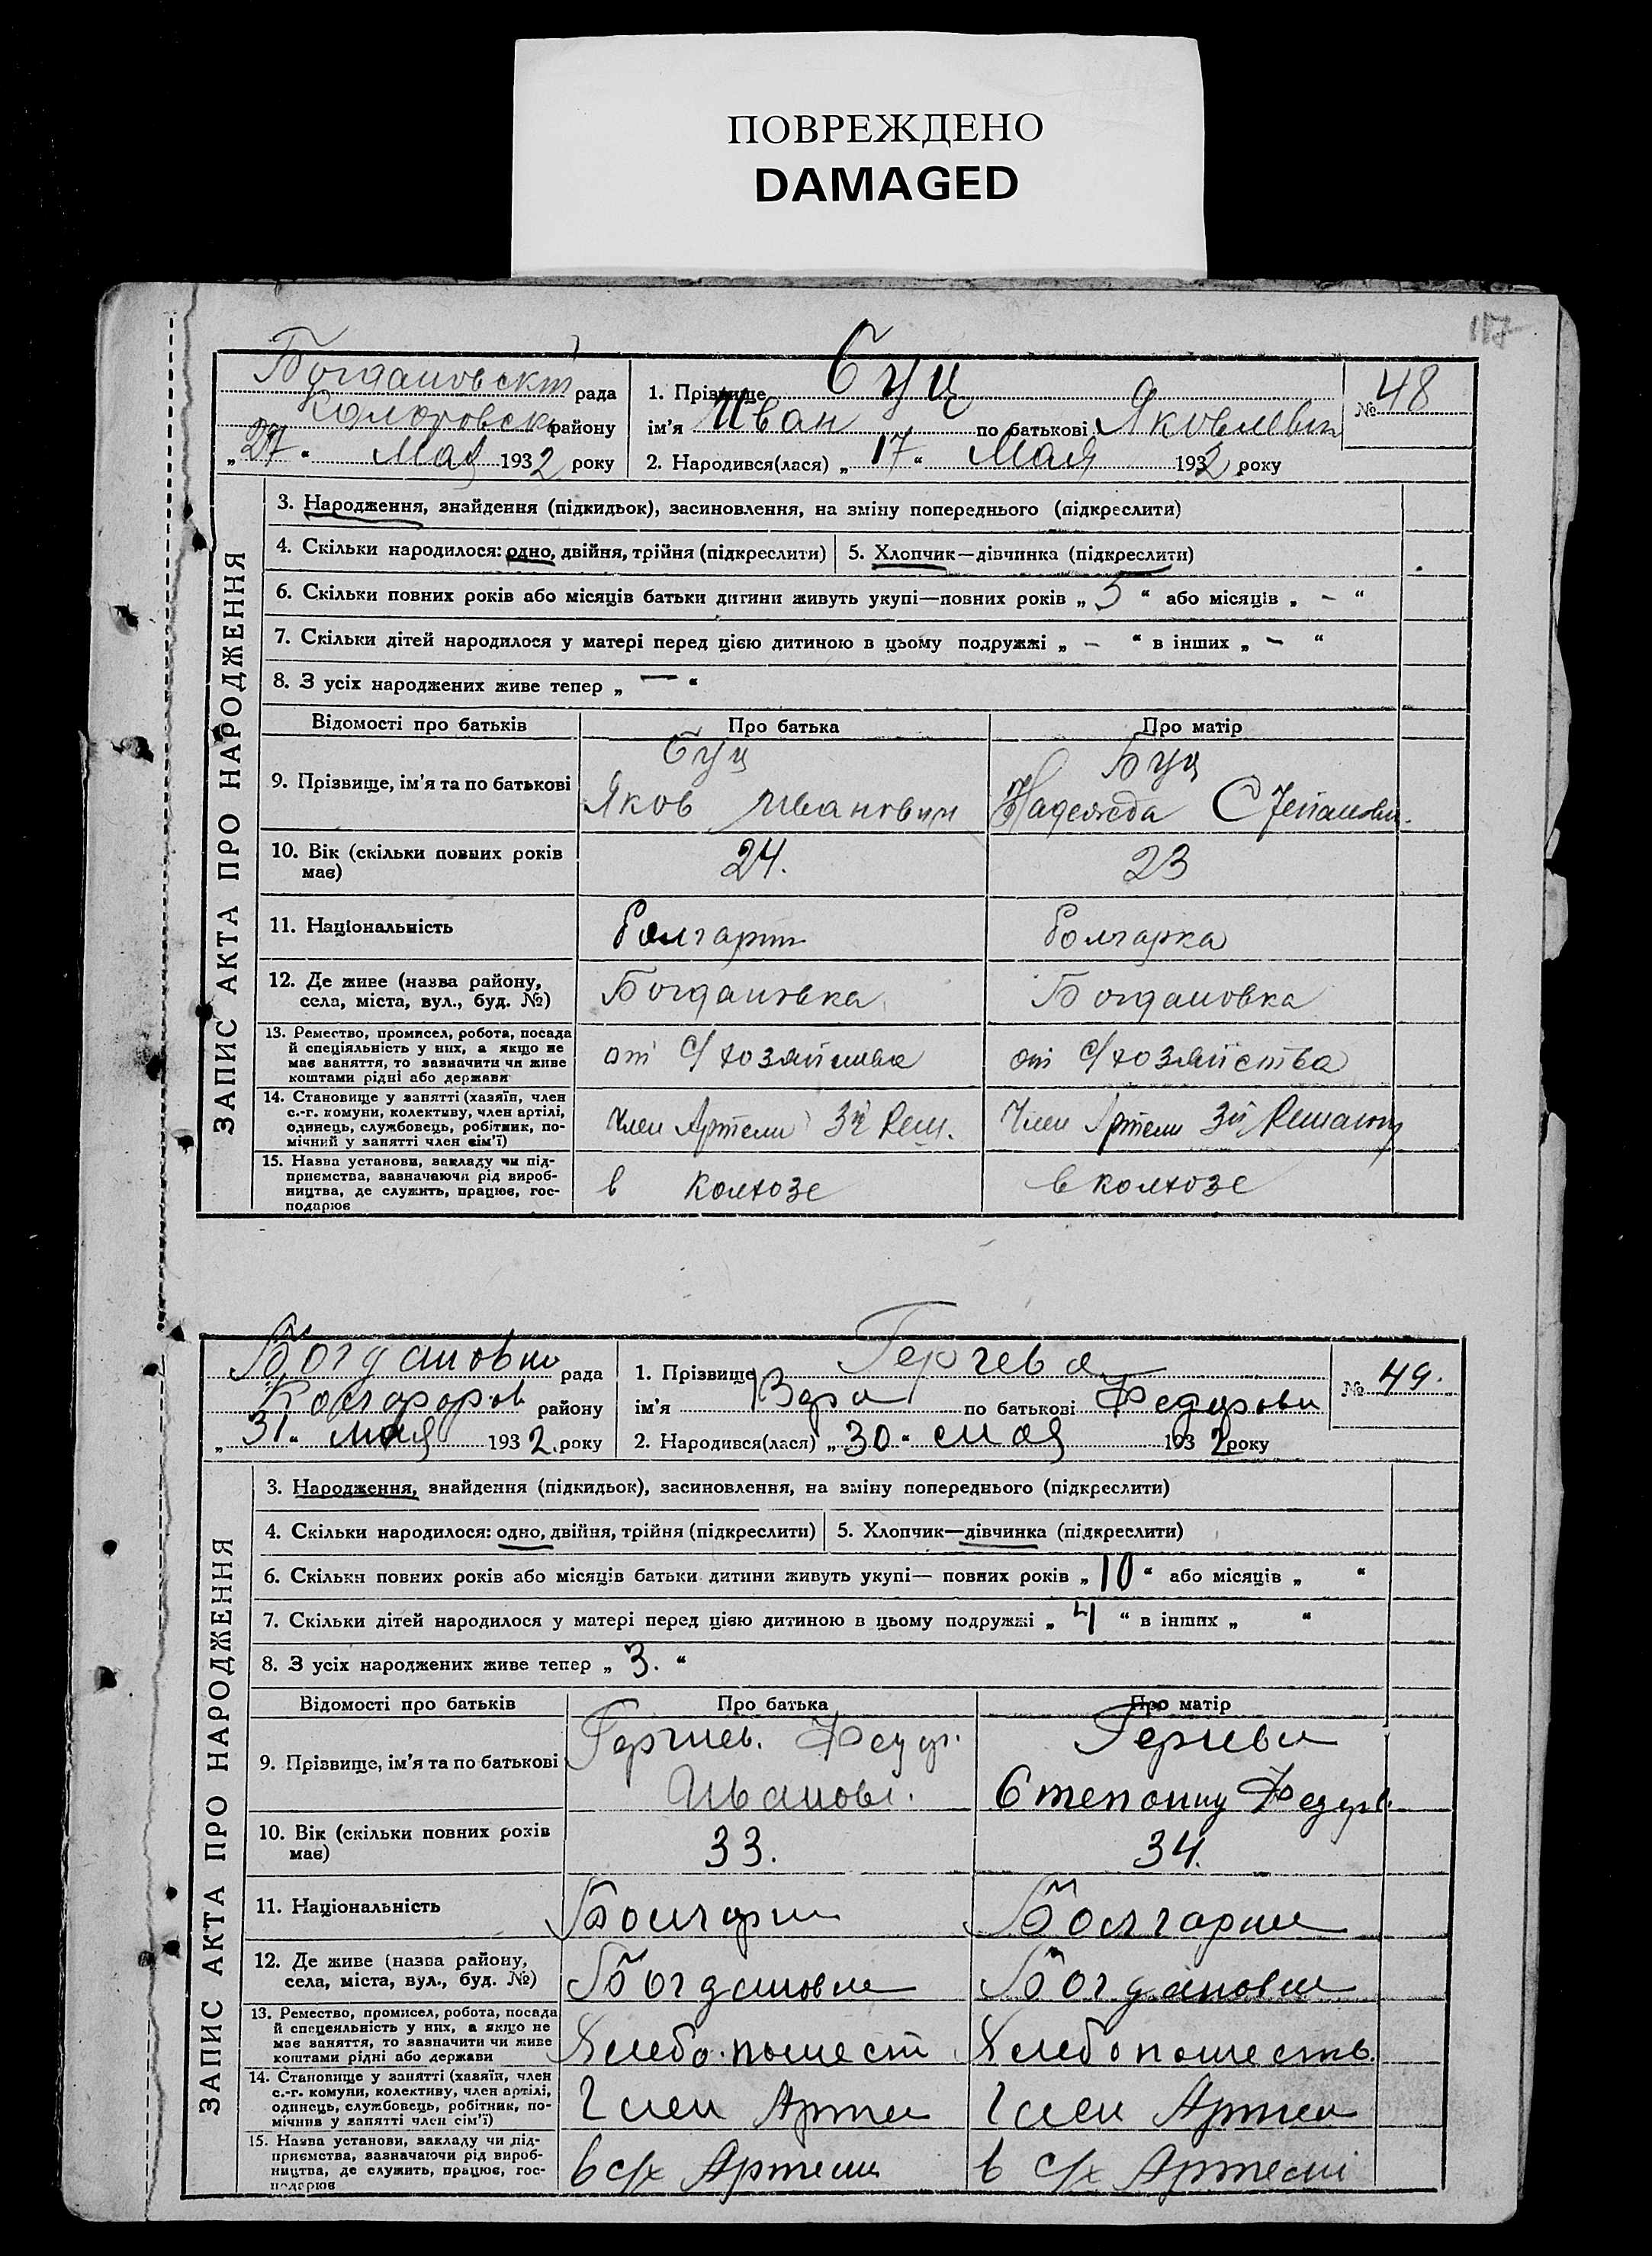 ПОВРЕЖДЕНО
DAMAGED
117
Богдановск рада
Коларовск району
„27“ Мая 1932 року
1. Прізвище Буц
ім'я Иван по батькові Яковлевич
№ 48
2. Народився(лася) „17“ Мая 1932 року
ЗАПИС АКТА ПРО НАРОДЖЕННЯ
3. Народження, знайдення (підкидьок), засиновлення, на зміну попереднього (підкреслити)
4. Скільки народилося: одно, двійня, трійня (підкреслити) 5. Хлопчик—дівчинка (підкреслити)
6. Скільки повних років або місяців батьки дитини живуть укупі—повних років „5“ або місяців „-“
7. Скільки дітей народилося у матері перед цією дитиною в цьому подружжі „-“ в інших „-“
8. З усіх народжених живе тепер „—“
Відомості про батьків Про батька Про матір
9. Прізвище, ім'я та по батькові
Буц
Яков Иванович
Буц
Надежда Степанови.
10. Вік (скільки повних років має) 24. 23
11. Національність Болгарин Болгарка
12. Де живе (назва району, села, міста, вул., буд. №) Богдановка Богдановка
13. Ремество, промисел, робота, посада
й спеціяльність у них, а якщо не
має заняття, то зазначити чи живе
коштами рідні або держави
от с/хозяйства от с/хозяйства
14. Становище у занятті (хазяїн, член
с.-г. комуни, колективу, член артілі,
одинець, службовець, робітник, по-
мічний у занятті член сім'ї)
Член Артели 3й Реш. Член Артели 3й
15. Назва установи, закладу чи під-
приємства, зазначаючи рід вироб-
ництва, де служить, працює, гос-
подарює
в колхозе в колхозе
Богдановка рада
району
„31“ мая 1932. року
1. Прізвище Гергева
ім'я Вера по батькові Федорови
№ 49.
2. Народився(лася) „30“ мая 1932 року
ЗАПИС АКТА ПРО НАРОДЖЕННЯ
3. Народження, знайдення (підкидьок), засиновлення, на зміну попереднього (підкреслити)
4. Скільки народилося: одно, двійня, трійня (підкреслити) 5. Хлопчик—дівчинка (підкреслити)
6. Скільки повних років або місяців батьки дитини живуть укупі— повних років „10“ або місяців „ “
7. Скільки дітей народилося у матері перед цією дитиною в цьому подружжі „4“ в інших „ “
8. З усіх народжених живе тепер „3.“
Відомості про батьків Про батька Про матір
9. Прізвище, ім'я та по батькові
Гергиев. Федор.
Иванови.
Гергева
Федоров.
10. Вік (скільки повних років має) 33. 34.
11. Національність Болгарин Болгарин
12. Де живе (назва району, села, міста, вул., буд. №) Богдановка Богдановка
13. Ремество, промисел, робота, посада
й спецеяльність у них, а якщо не
має заняття, то зазначити чи живе
коштами рідні або держави
Хлебопашест Хлебопашеств.
14. Становище у занятті (хазяїн, член
с.-г. комуни, колективу, член артілі,
одинець, службовець, робітник, по-
мічний у занятті член сім'ї)
Член Артел Член Артел
15. Назва установи, закладу чи під-
приємства, зазначаючи рід вироб-
ництва, де служить, працює, гос-
подарює
в с/х Артели в с/х Артели